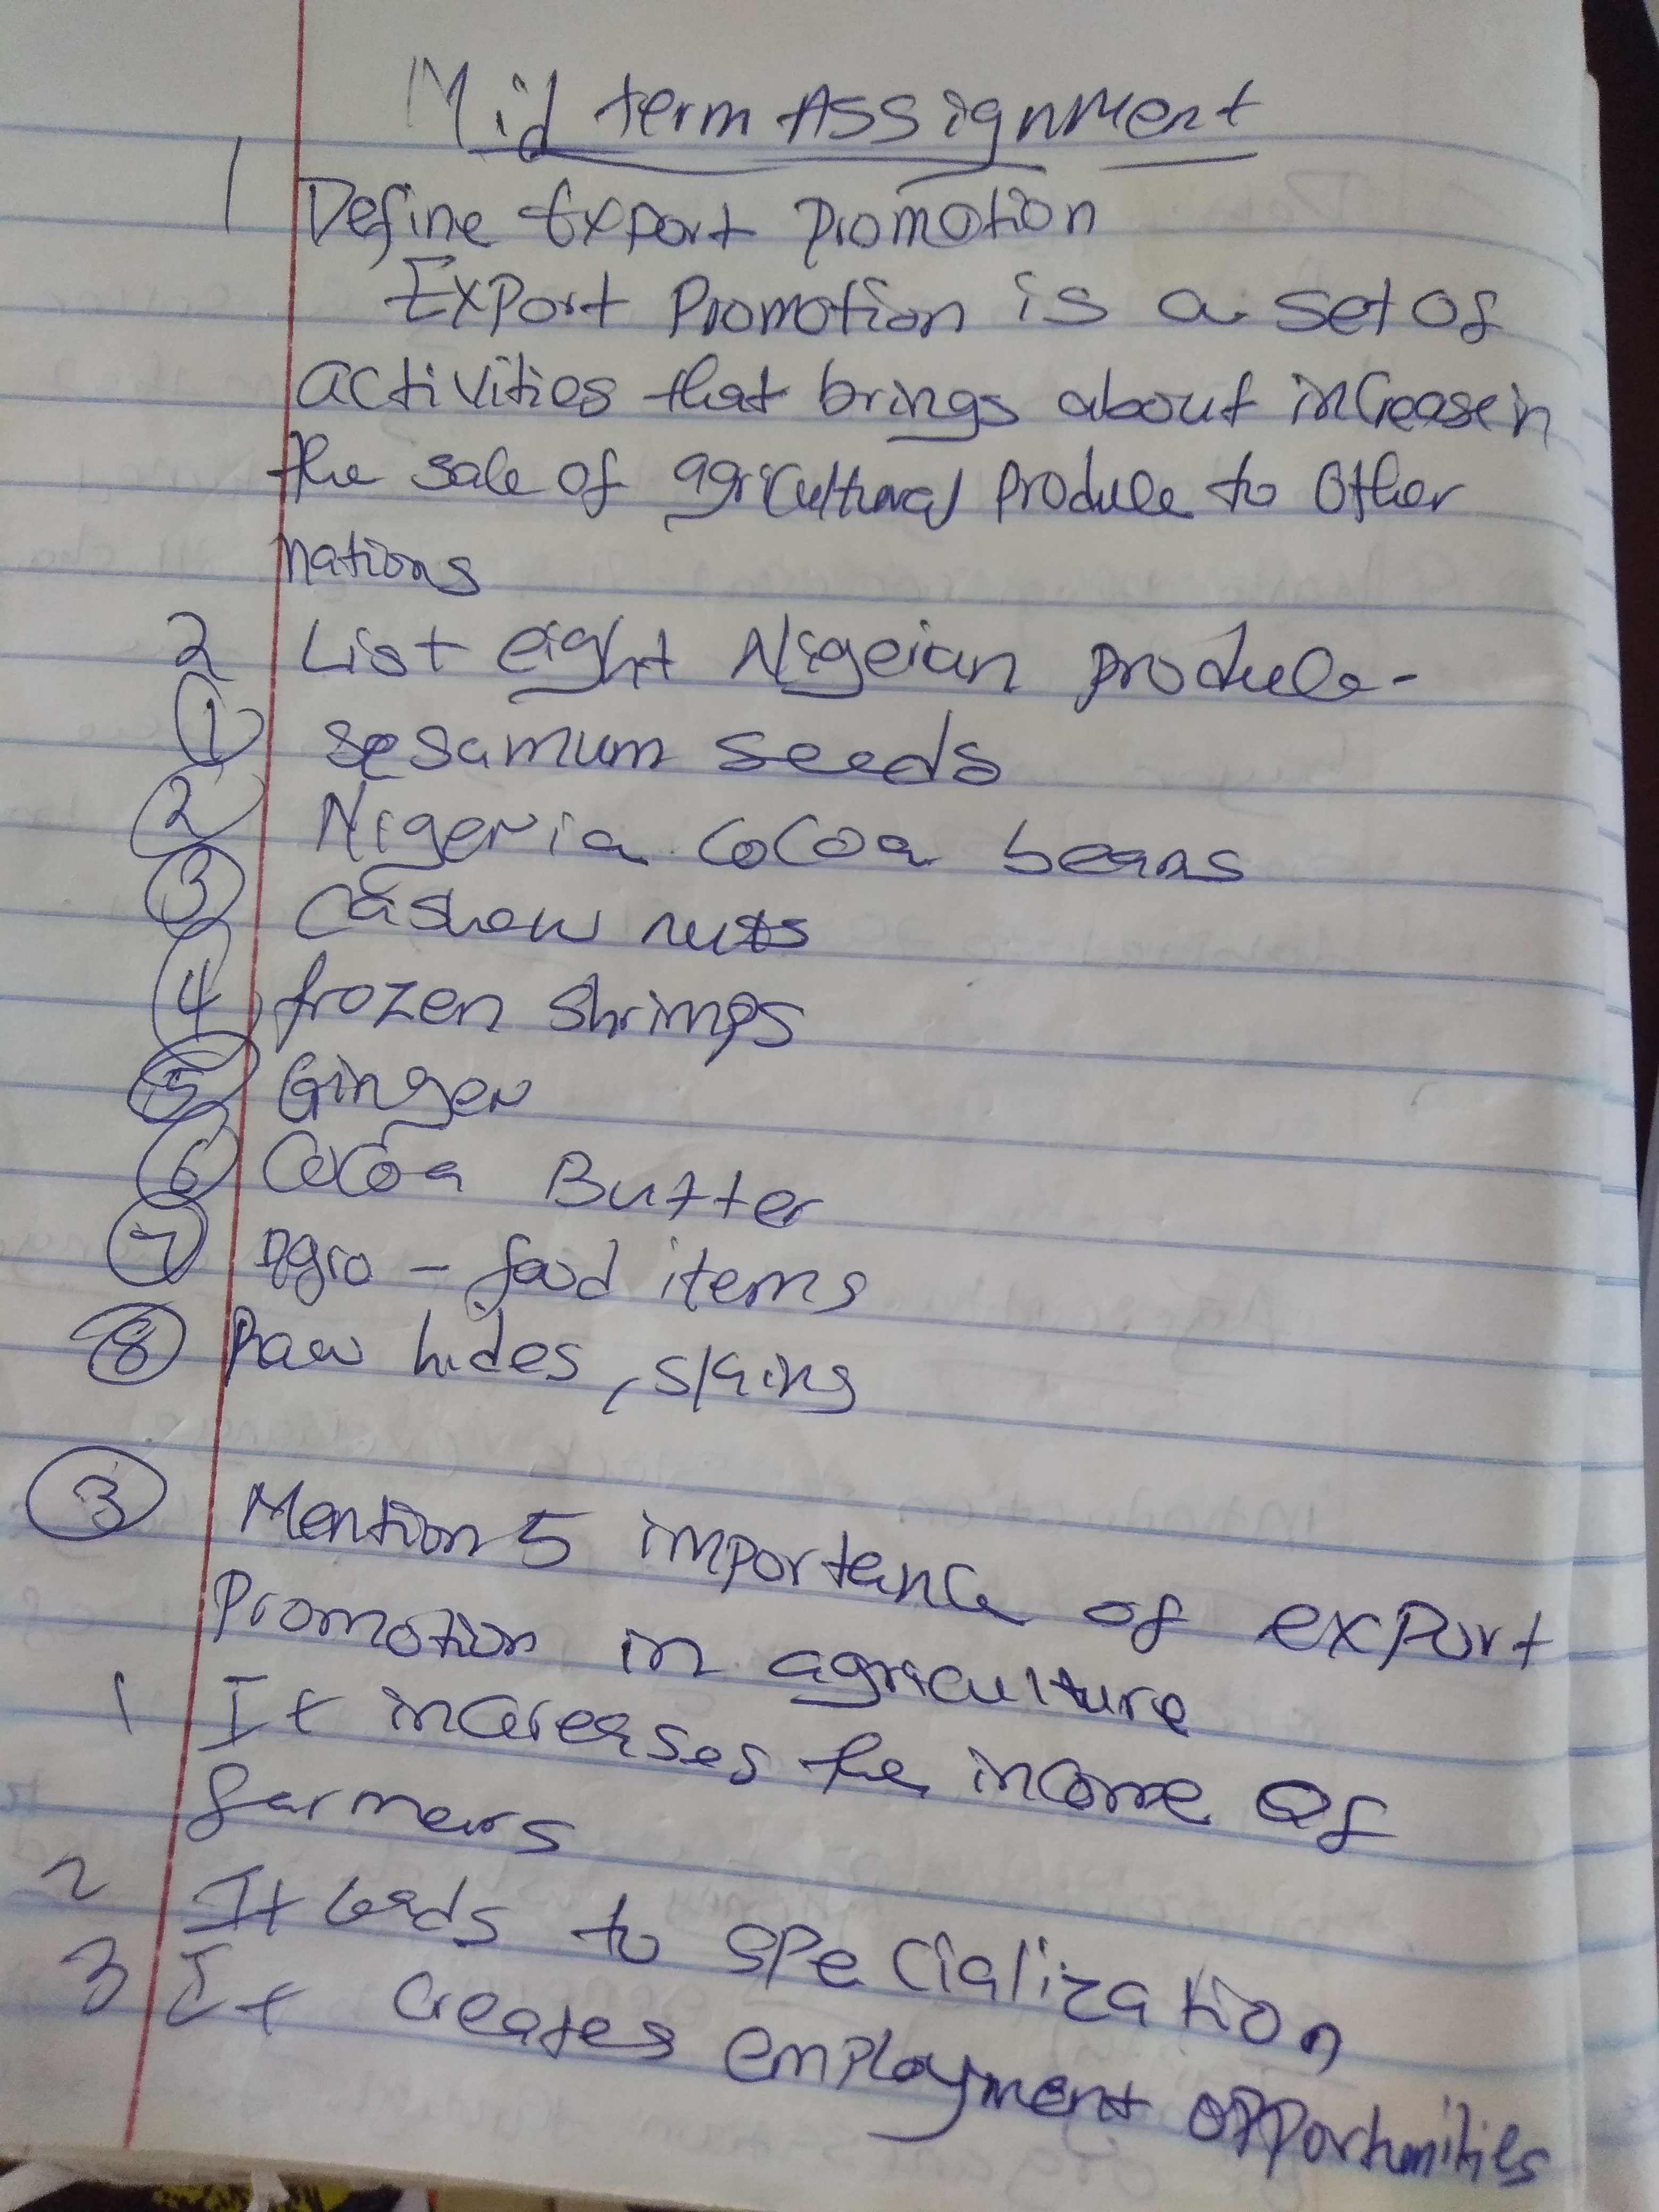 Mid term Assignment
1 Define Export promotion
Export Promotion is a set of
activities that brings about increase in
the sale of agricultural produce to other
nations
2 List eight Nigeian produce-
① sesamum seeds
② Nigeria cocoa beans
③ Cashew nuts
④ frozen shrimps
⑤ Ginger
⑥ Cocoa Butter
⑦ Agro - food items
⑧ Raw hides, skins
③ Mention 5 importance of export
Promotion in agriculture
1 It increases the income of
farmers
2 It leads to specialization
3 It creates employment opportunities